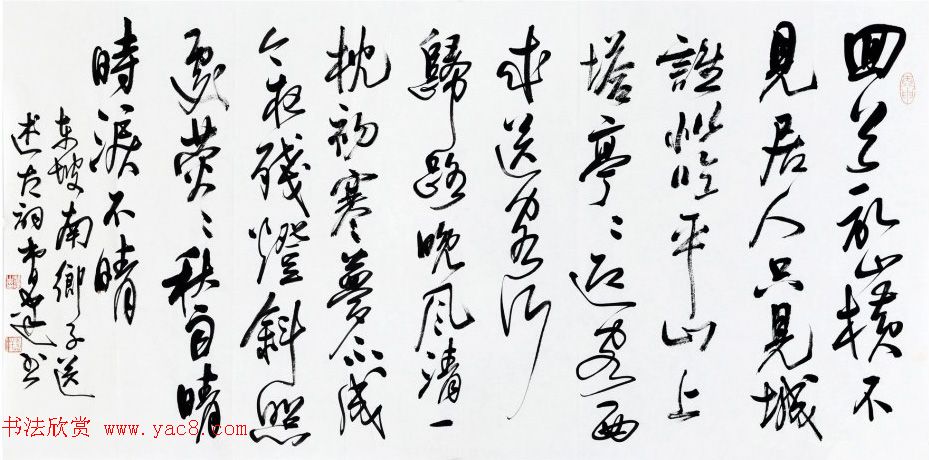 回首乱山横不
見居人只見城
誰似临平山上
塔亭〻迎客西
来送客行
歸路晚风清一
枕初寒夢不成
今夜殘燈斜照
處荧〻秋雨晴
時淚不晴
东坡南鄉子送
述古词 书
书法欣赏 www.yac8.com